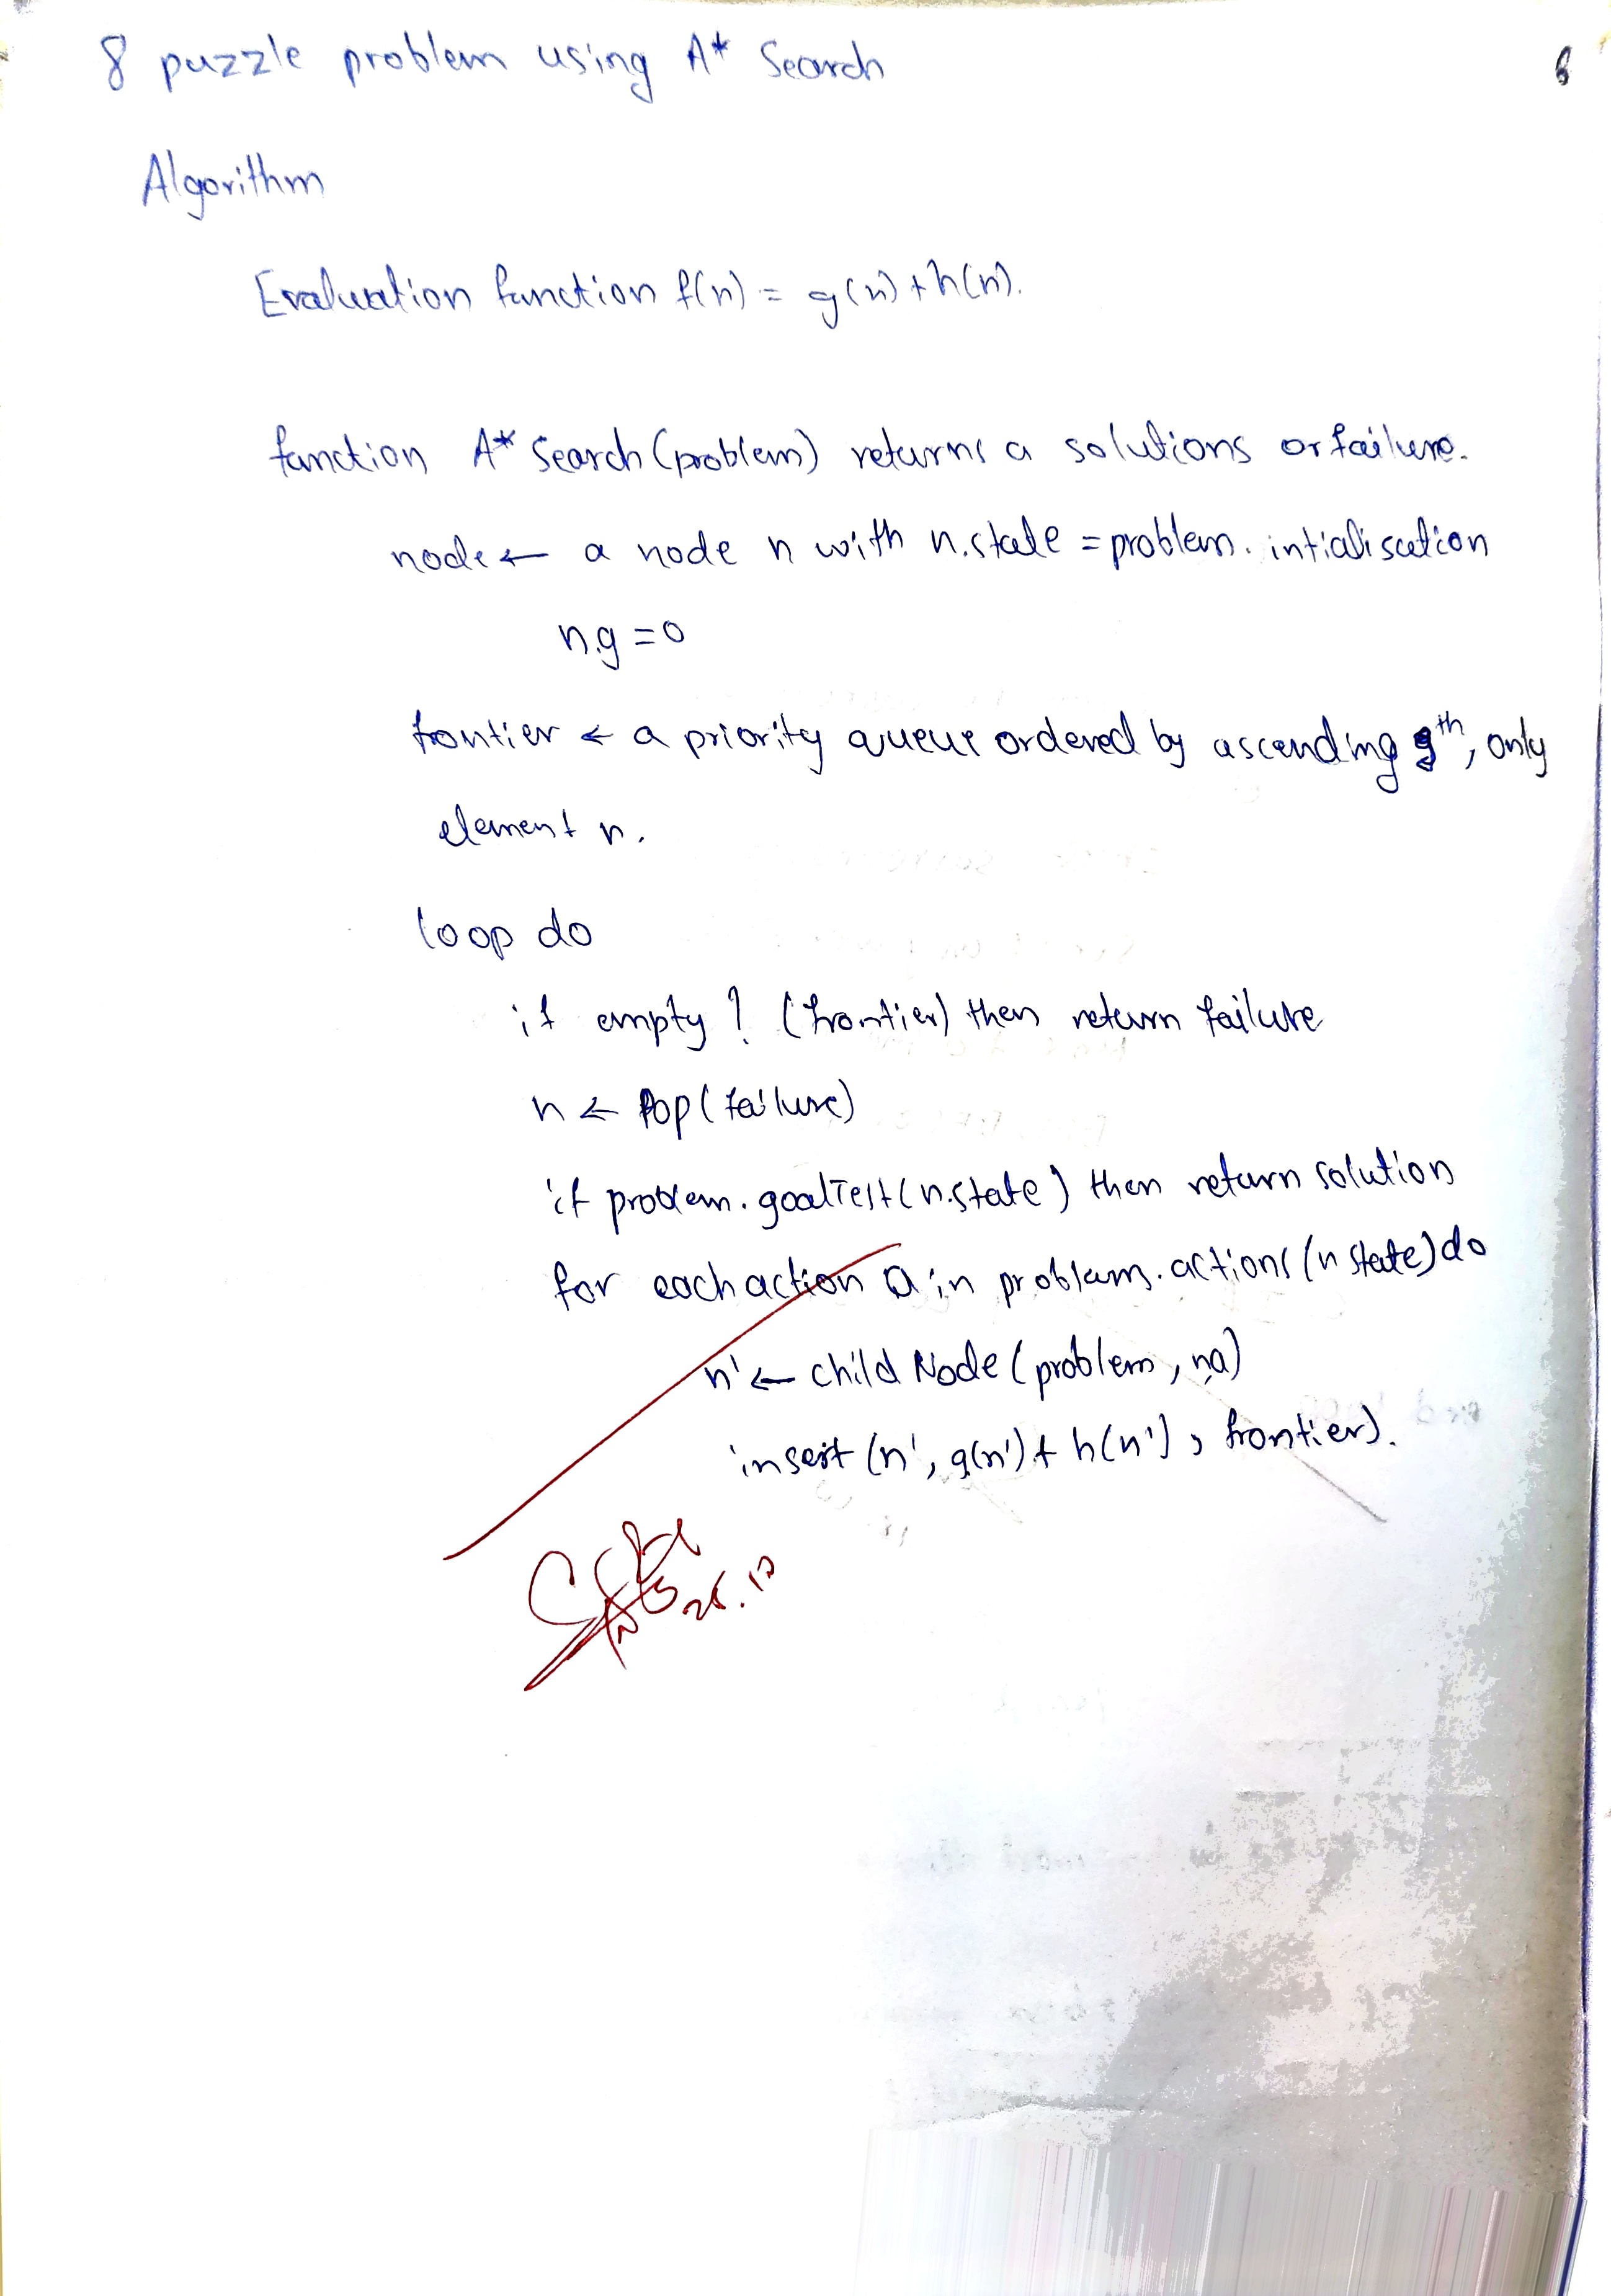 8 puzzle problem using A* Search
6
Algorithm
Evaluation function f(n) = g(n) + h(n).
function A* Search (problem) returns a solutions or failure.
node ← a node n with n.state = problem. intialisation
n.g = 0
frontier ← a priority queue ordered by ascending gth, only
element n.
loop do
if empty ? (frontier) then return failure
n ← Pop (failure)
if problem. goalTest (n.state) then return solution
for each action a in problem. actions (n state) do
n' ← child Node (problem, na)
insert (n', g(n') + h(n'), frontier).